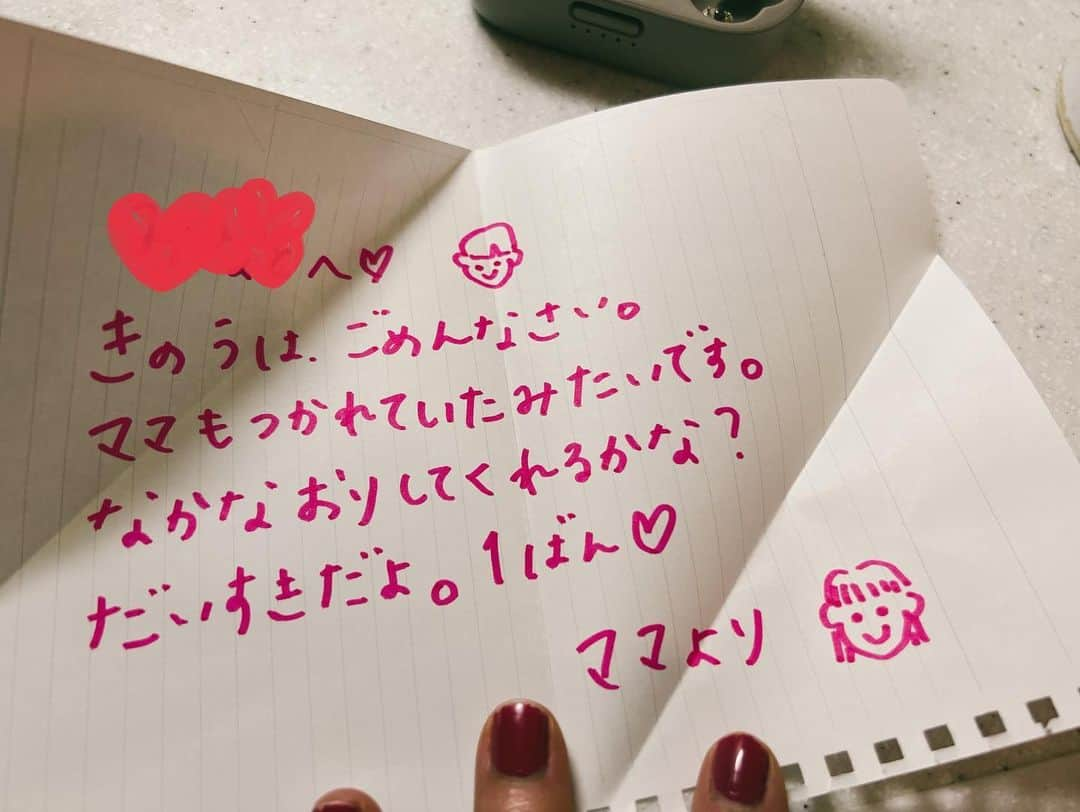 へ♡
きのうは、ごめんなさい。
ママもつかれていたみたいです。
なかなおりしてくれるかな？
だいすきだよ。1ばん♡
ママより